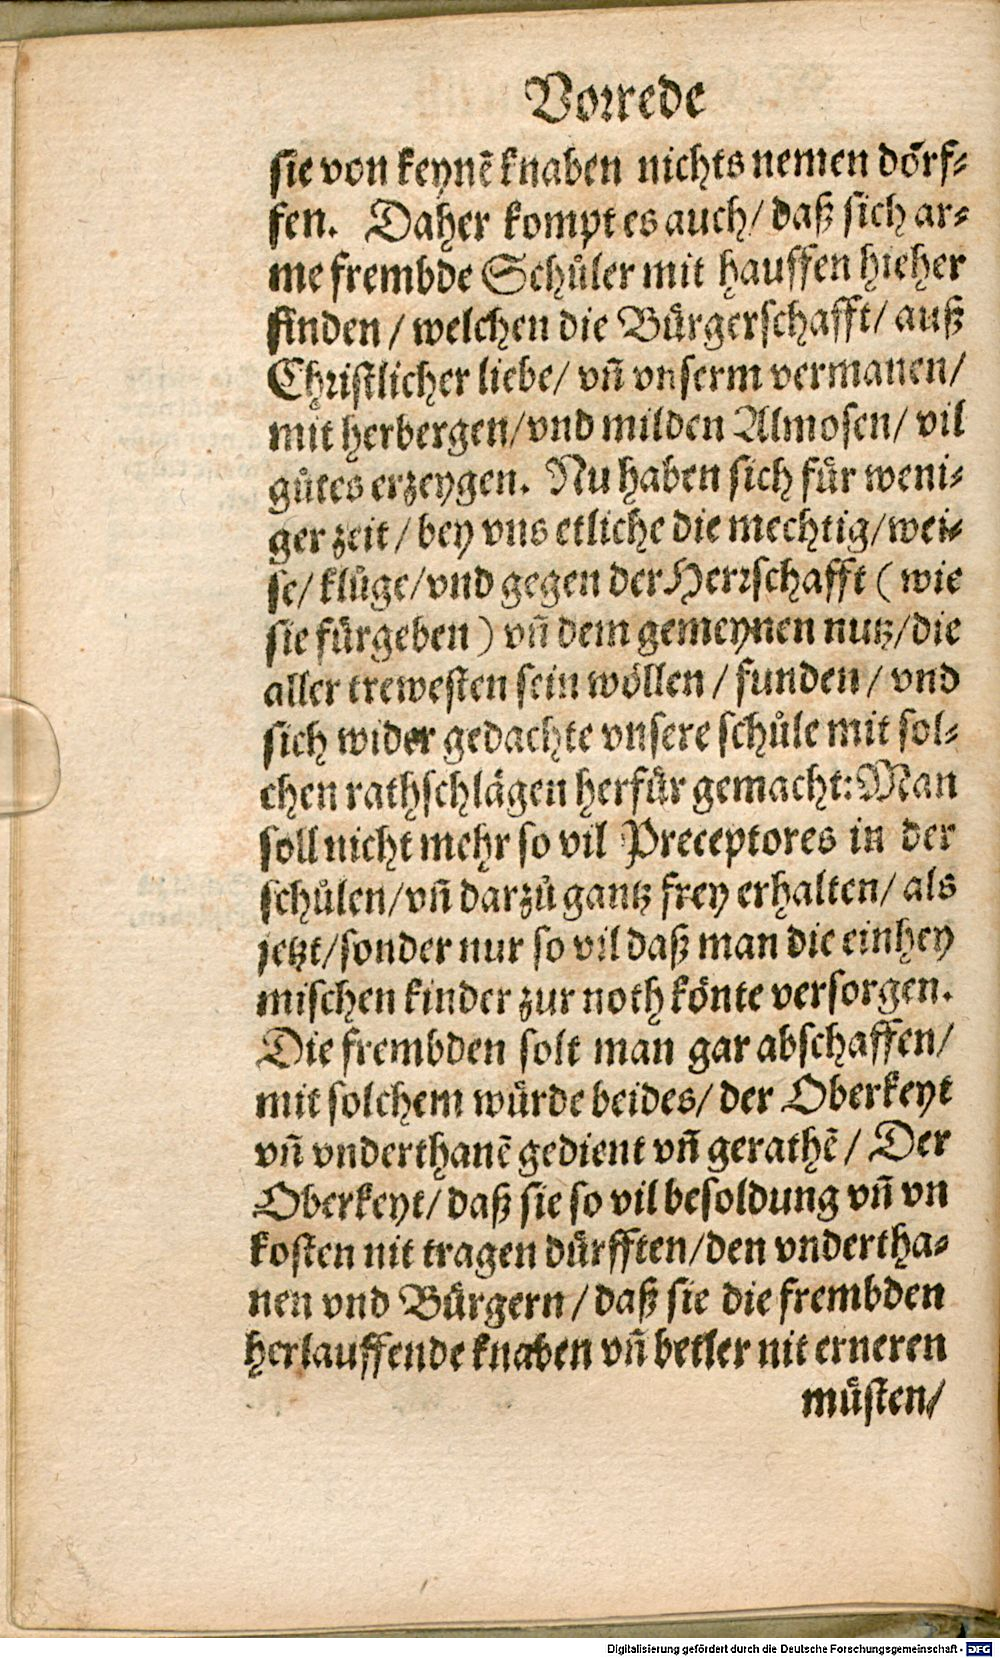 Vorrede
sie von keynē knaben nichts nemen dörf-
fen. Daher kompt es auch/ daß sich ar-
me frembde Schuͤler mit hauffen hieher
finden / welchen die Bürgerschafft/ auß
Christlicher liebe/ vñ vnserm vermanen/
mit herbergen/vnd milden Almosen/ vil
guͤtes erzeygen. Nu haben sich für weni-
ger zeit / bey vns etliche die mechtig/wei-
se/ kluͤge/vnd gegen der Herrschafft ( wie
sie fürgeben ) vñ dem gemeynen nutz/die
aller trewesten sein wöllen / funden / vnd
sich wider gedachte vnsere schuͤle mit sol-
chen rathschlägen herfür gemacht: Man
soll nicht mehr so vil Preceptores in der
schuͤlen/vñ darzuͤ gantz frey erhalten/ als
jetzt/sonder nur so vil daß man die einhey
mischen kinder zur noth könte versorgen.
Die frembden solt man gar abschaffen/
mit solchem würde beides/ der Oberkeyt
vñ vnderthanē gedient vñ gerathē / Der
Oberkeyt/ daß sie so vil besoldung vñ vn
kosten nit tragen dürfften/den vndertha-
nen vnd Bürgern / daß sie die frembden
herlauffende knaben vñ betler nit erneren
müsten/
Digitalisierung gefördert durch die Deutsche Forschungsgemeinschaft - DFG